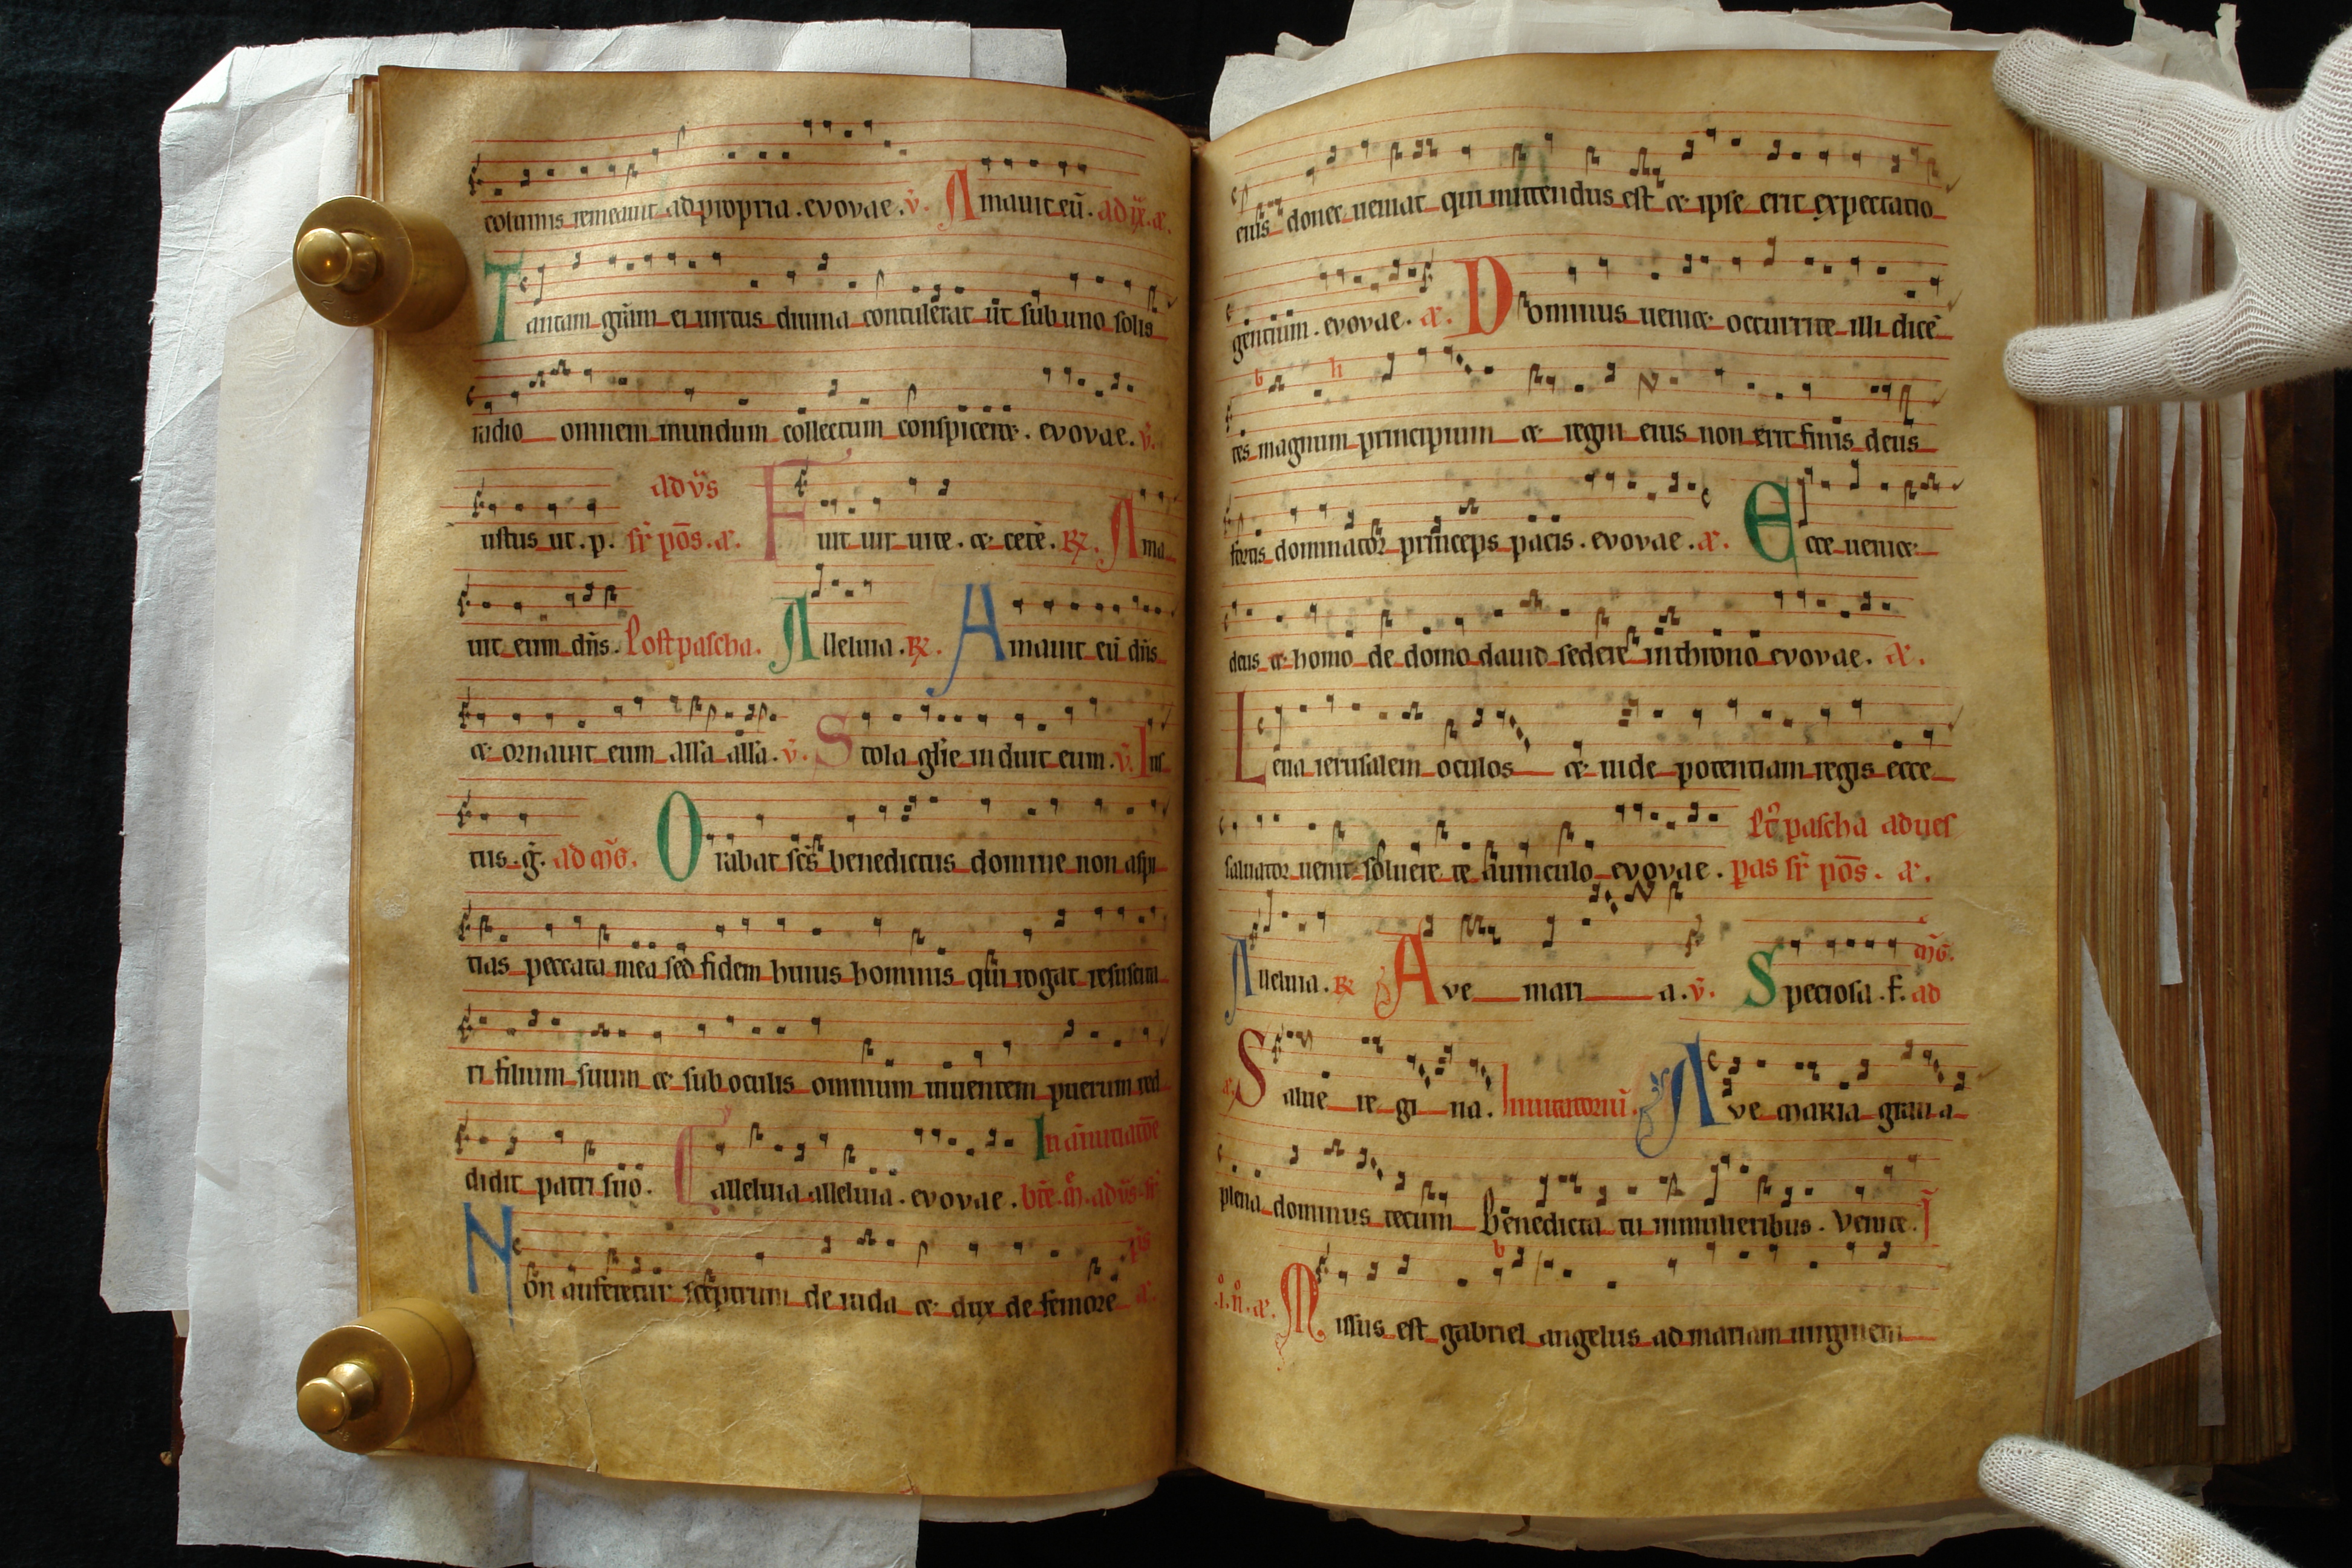 columis remeavit ad propria . evovae . v̄. Amavit eū . ad ix. a.
Tantam grām ei virtus divina contulerat ut sub uno solis
radio omnem mundum collectum conspiceret . evovae . v̄.
ustus ut . p. ad vs̄ sr̄ pōs . a. Fuit vir vite . et cetē . R. Ama
vit eum dn̄s . Post pascha . Alleluia . R. Amavit eū dn̄s
et ornavit eum alla alla . v̄. Stola glīe induit eum . v̄. Ius
tus . g. Orabat sc̄s benedictus domine non aspi
cias peccata mea sed fidem huius hominis qui rogat resuscita
ri filium suum et sub oculis omnium viventem puerum red
didit patri suo . alleluia alleluia . evovae . In annūciatōe
bt̄e . m̄ . ad vs̄ sr̄ ps̄
Non auferetur sceptrum de iuda et dux de femore a.
eius donec veniat qui mittendus est et ipse erit expectatio
gentium . evovae . a. Dominus veniet occurrite illi dicē
tes magnum principium et regni eius non erit finis deus
fortis dominator princeps pacis . evovae . a. Ecce veniet
deus et homo de domo david sedere in throno evovae . a.
Leva ierusalem oculos et vide potentiam regis ecce
salvator venit solvere te a vinculo evovae . Pt̄ pascha ad ves
pas sr̄ pōs . a.
Alleluia . R Ave mari a . v̄. Speciosa . f. ad
Salve re gi na . Invitatoriū . Ave maria gratia
plena dominus tecum benedicta tu in mulieribus . Venite .
a. Missus est gabriel angelus ad mariam virginem